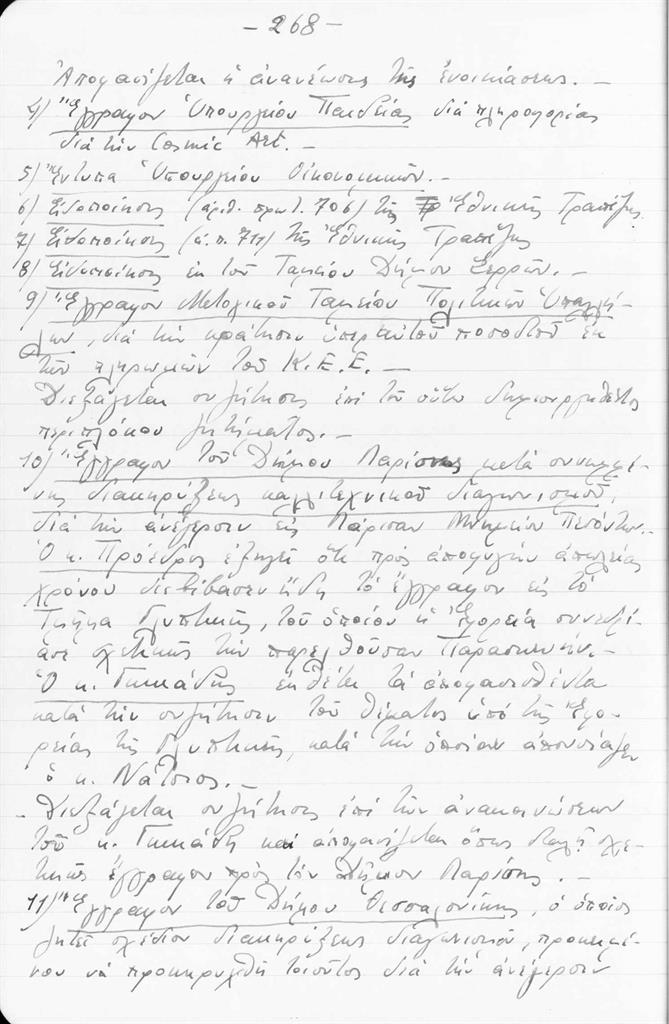 - 268 -
Ἀποφασίζεται ἡ ἀνανέωσις τῆς ἐνοικιάσεως. -
4) Ἔγγραφον Ὑπουργείου Παιδείας διά πληροφορίας
διά τήν Cosmic Art. -
5) Ἔντυπα Ὑπουργείου Οἰκονομικῶν. -
6) Εἰδοποίησις (ἀριθ. πρωτ. 706) τῆς Ἐθνικῆς Τραπέζης
7) Εἰδοποίησις (ἀ.π. 711) τῆς Ἐθνικῆς Τραπέζης
8) Εἰδοποίησις ἐκ τοῦ Ταμείου Δήμου Σερρῶν. -
9) Ἔγγραφον Μετοχικοῦ Ταμείου Πολιτικῶν Ὑπαλλή-
λων, διά τήν κράτησιν ὑπέρ αὐτοῦ ποσοστοῦ ἐκ
τῶν πληρωμῶν τοῦ Κ.Ε.Ε. -
Διεξάγεται συζήτησις ἐπί τοῦ οὕτω δημιουργηθέντος
περιπλόκου ζητήματος. -
10) Ἔγγραφον τοῦ Δήμου Λαρίσης μετά συνημμέ-
νης διακηρύξεως καλλιτεχνικοῦ διαγωνισμοῦ,
διά τήν ἀνέγερσιν εἰς Λάρισαν Μνημείου Πεσόντων. -
Ὁ κ. Πρόεδρος ἐξηγεῖ ὅτι πρός ἀποφυγήν ἀπωλείας
χρόνου διεβίβασεν ἤδη τό ἔγγραφον εἰς τό
Τμῆμα Γλυπτικῆς, τοῦ ὁποίου ἡ Ἐφορεία συνεδρί-
ασε σχετικῶς τήν παρελθοῦσαν Παρασκευήν. -
Ὁ κ. Γκικάδης ἐκθέτει τά ἀποφασισθέντα
κατά τήν συζήτησιν τοῦ θέματος ὑπό τῆς Ἐφο-
ρείας τῆς Γλυπτικῆς, κατά τήν ὁποίαν ἀπουσίαζεν
ὁ κ. Νάτσιος. -
- Διεξάγεται συζήτησις ἐπί τῶν ἀνακοινώσεων
τοῦ κ. Γκικάδη καί ἀποφασίζεται ὅπως σταλῇ σχε-
τικῶς ἔγγραφον πρός τόν Δῆμον Λαρίσης. -
11) Ἔγγραφον τοῦ Δήμου Θεσσαλονίκης, ὁ ὁποῖος
ζητεῖ σχέδιον διακηρύξεως διαγωνισμοῦ, προκειμέ-
νου νά προκηρυχθῇ τοιοῦτος διά τήν ἀνέγερσιν